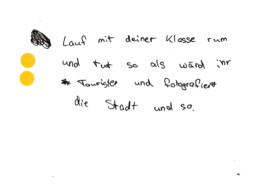 Lauf mit deiner Klasse rum
und tut so als wärd ihr
Tourister und fotografiert
die Stadt und so.